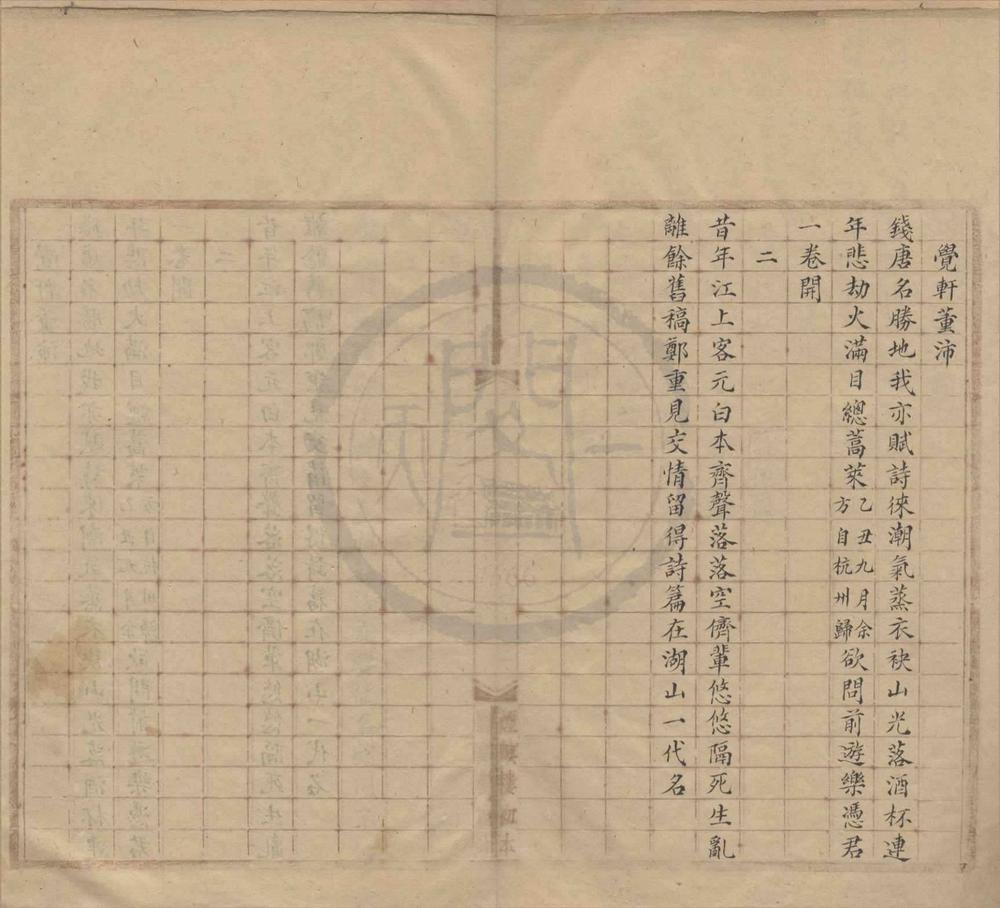 覺軒董沛
錢唐名勝地我亦賦詩徠潮氣蒸衣袂山光落酒杯連
年悲劫火滿目總蒿萊乙丑九月余方自杭州歸欲問前遊樂憑君
一卷開
二
昔年江上客元白本齊聲落落空儕輩悠悠隔死生亂
離餘舊稿鄭重見交情留得詩篇在湖山一代名